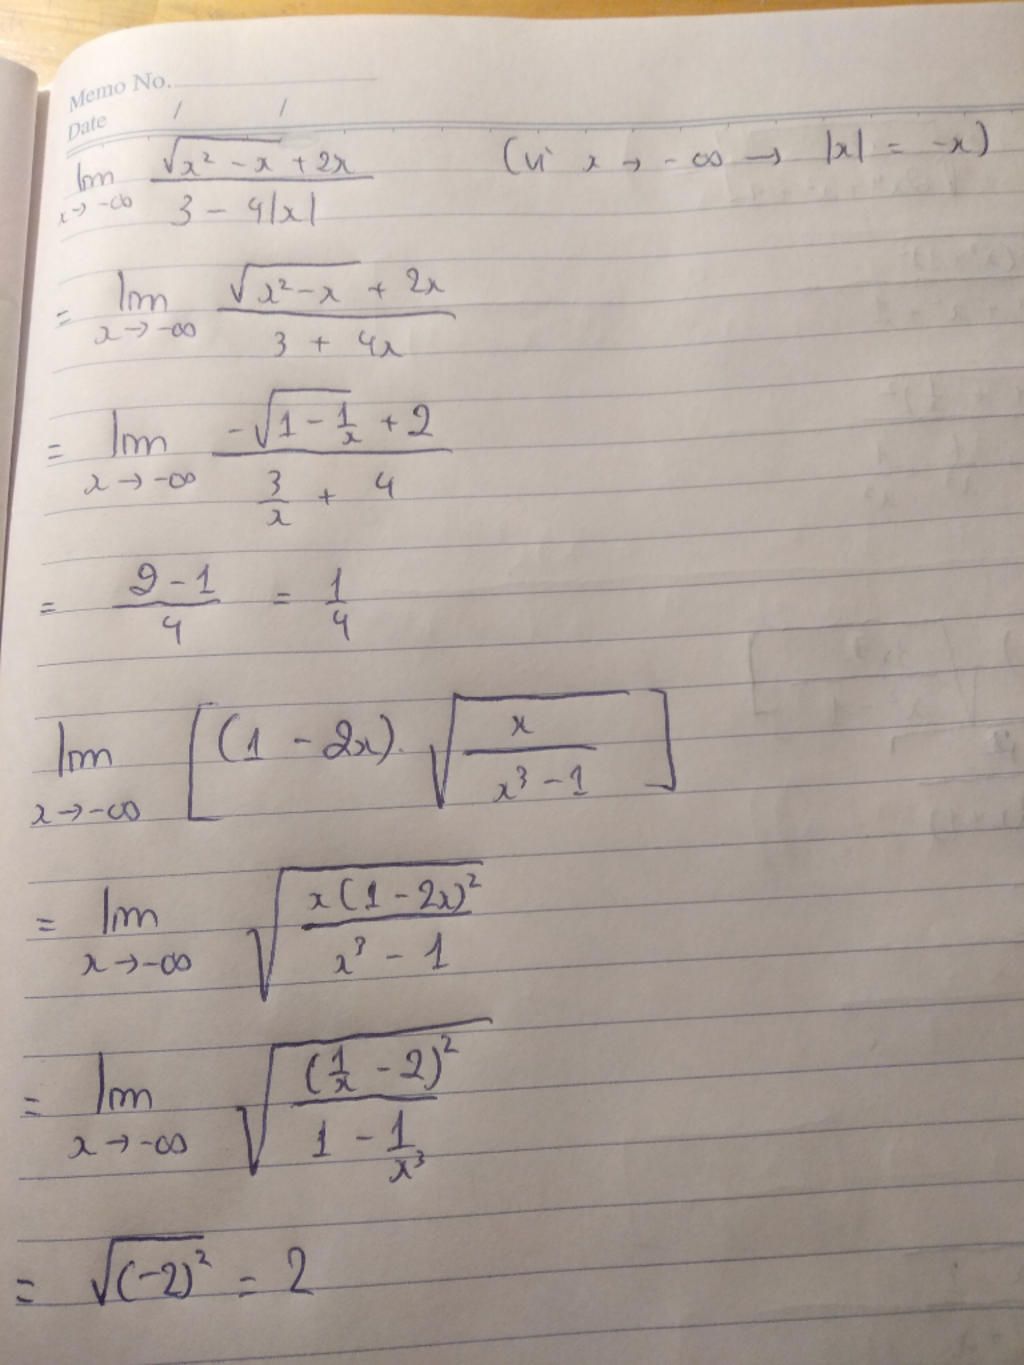 Memo No.
Date / /
lim x→-∞ (√(x² - x) + 2x)/(3 - 4|x|) (vì x → -∞ → |x| = -x)
= lim x→-∞ (√(x² - x) + 2x)/(3 + 4x)
= lim x→-∞ (-√(1 - 1/x) + 2)/(3/x + 4)
= (2 - 1)/4 = 1/4
lim x→-∞ [(1 - 2x).√(x/(x³ - 1))]
= lim x→-∞ √(x(1 - 2x)²/(x³ - 1))
= lim x→-∞ √((1/x - 2)²/(1 - 1/x³))
= √(-2)² = 2